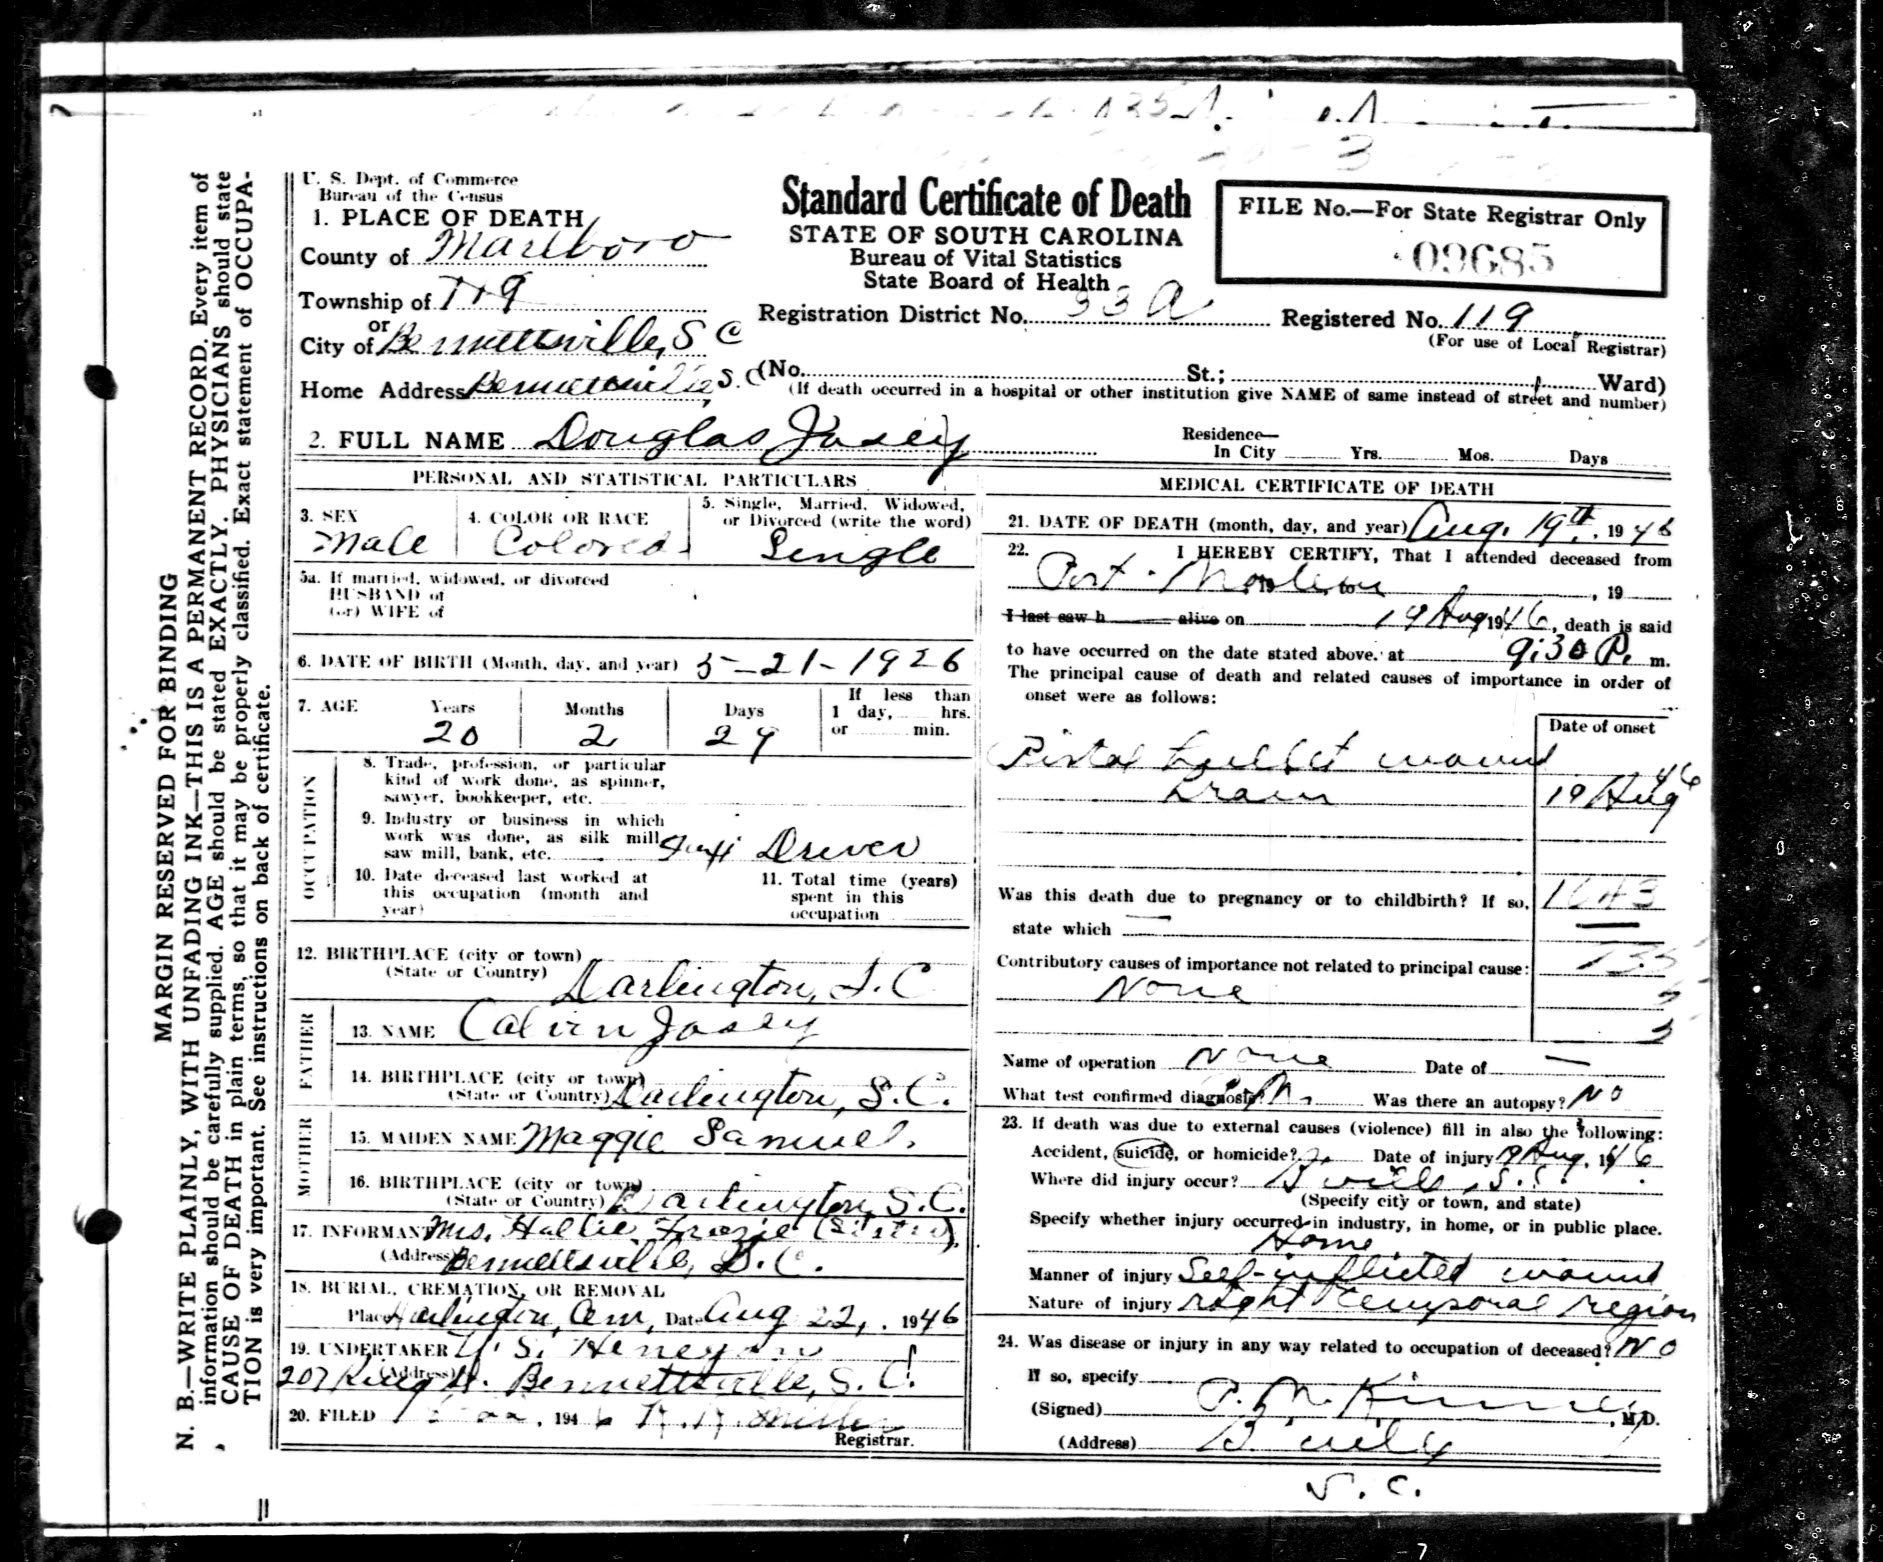 U. S. Dept. of Commerce
Bureau of the Census
1. PLACE OF DEATH
County of Marlboro
Township of
or
City of Bennettsville, S C
Home Address Bennettsville, S. C.
Standard Certificate of Death
STATE OF SOUTH CAROLINA
Bureau of Vital Statistics
State Board of Health
FILE No.—For State Registrar Only
09685
Registration District No. 33 A
Registered No. 119
(For use of Local Registrar)
(No. St.; Ward)
(If death occurred in a hospital or other institution give NAME of same instead of street and number)
2. FULL NAME Douglas Josey
Residence—
In City Yrs. Mos. Days
PERSONAL AND STATISTICAL PARTICULARS
3. SEX
Male
4. COLOR OR RACE
Colored
5. Single, Married, Widowed,
or Divorced (write the word)
Single
5a. If married, widowed, or divorced
HUSBAND of
(or) WIFE of
6. DATE OF BIRTH (Month, day, and year) 5-21-1926
7. AGE Years Months Days
20 2 29
If less than
1 day, hrs.
or min.
OCCUPATION
8. Trade, profession, or particular
kind of work done, as spinner,
sawyer, bookkeeper, etc.
9. Industry or business in which
work was done, as silk mill,
saw mill, bank, etc. Taxi Driver
10. Date deceased last worked at
this occupation (month and
year)
11. Total time (years)
spent in this
occupation
12. BIRTHPLACE (city or town)
(State or Country) Darlington, S. C.
FATHER
13. NAME Calvin Josey
14. BIRTHPLACE (city or town)
(State or Country) Darlington, S. C.
MOTHER
15. MAIDEN NAME Maggie Samuel
16. BIRTHPLACE (city or town)
(State or Country) Darlington, S. C.
17. INFORMANT Mrs. Hallie (Sister)
(Address) Bennettsville, S. C.
18. BURIAL, CREMATION, OR REMOVAL
Place Darlington, Cem, Date Aug 22, 1946
19. UNDERTAKER
(Address) 207 Bennettsville, S. C.
20. FILED 1946 Miller
Registrar.
MEDICAL CERTIFICATE OF DEATH
21. DATE OF DEATH (month, day, and year) Aug. 19th, 1946
22. I HEREBY CERTIFY, That I attended deceased from
Post-Mortem , 19 to , 19
I last saw h alive on 19 Aug 1946, death is said
to have occurred on the date stated above, at 9:30 P. m.
The principal cause of death and related causes of importance in order of
onset were as follows:
Date of onset
Pistol bullet wound
brain 19 Aug 46
Was this death due to pregnancy or to childbirth? If so,
state which —
Contributory causes of importance not related to principal cause:
None
Name of operation None Date of —
What test confirmed diagnosis? P. M. Was there an autopsy? No
23. If death was due to external causes (violence) fill in also the following:
Accident, suicide, or homicide? Date of injury 19 Aug. 1946
Where did injury occur? B'ville, S. C.
(Specify city or town, and state)
Specify whether injury occurred in industry, in home, or in public place.
Home
Manner of injury Self-inflicted wound
Nature of injury right temporal region
24. Was disease or injury in any way related to occupation of deceased? No
If so, specify
(Signed) P. M. Kinney, M.D.
(Address) B'ville
S. C.
MARGIN RESERVED FOR BINDING
N. B.—WRITE PLAINLY, WITH UNFADING INK—THIS IS A PERMANENT RECORD. Every item of
information should be carefully supplied. AGE should be stated EXACTLY. PHYSICIANS should state
CAUSE OF DEATH in plain terms, so that it may be properly classified. Exact statement of OCCUPA-
TION is very important. See instructions on back of certificate.